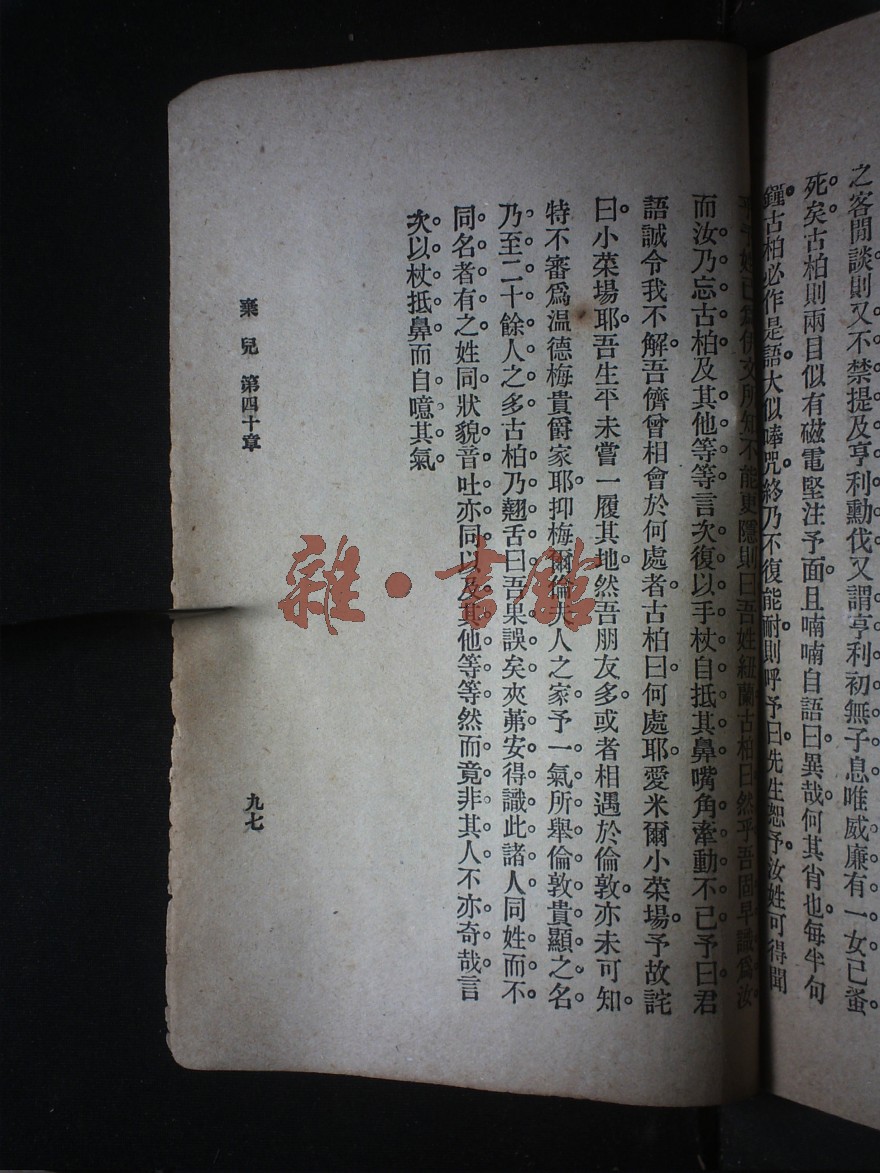 之客閒談則又不禁提及亨利勳伐又謂亨利初無子息唯威廉有一女已蚤
死矣古柏則兩目似有磁電堅注予面且喃喃自語曰異哉何其肖也每半句
鐘古柏必作是語大似唪咒終乃不復能耐則呼予曰先生恕予汝姓可得聞
乎予姓已爲伊文所知不能更隱則曰吾姓紐蘭古柏曰然乎吾固早識爲汝
而汝乃忘古柏及其他等等言次復以手杖自抵其鼻嘴角牽動不已予曰君
語誠令我不解吾儕曾相會於何處者古柏曰何處耶愛米爾小菜場予故詫
曰小菜場耶吾生平未嘗一履其地然吾朋友多或者相遇於倫敦亦未可知
特不審爲温德梅貴爵家耶抑梅爾倫夫人之家予一氣所舉倫敦貴顯之名
乃至二十餘人之多古柏乃翹舌曰吾果誤矣夾茀安得識此諸人同姓而不
同名者有之姓同狀貌音吐亦同以及其他等等然而竟非其人不亦奇哉言
次以杖抵鼻而自噫其氣
棄兒 第四十章
九七
雜·書館